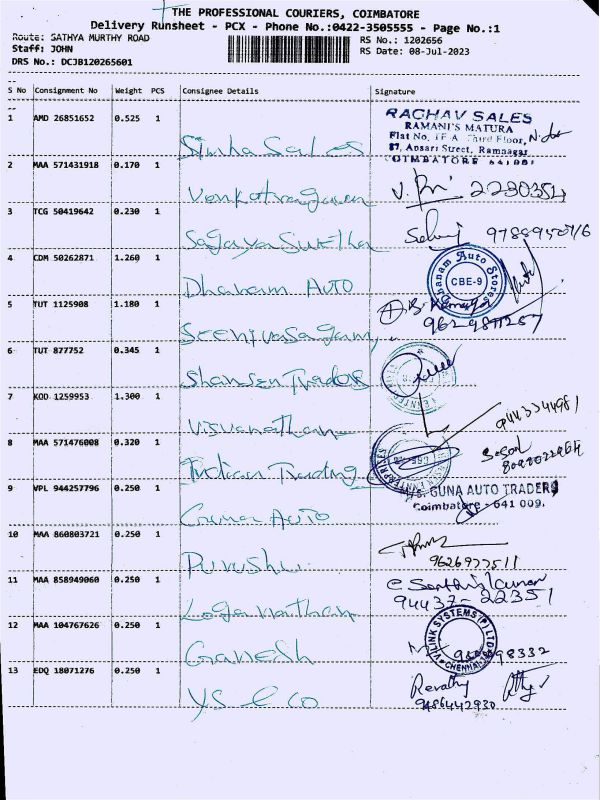 THE PROFESSIONAL COURIERS, COIMBATORE
Delivery Runsheet - PCX - Phone No.:0422-3505555 - Page No.:1
Route: SATHYA MURTHY ROAD RS No.: 1202656
Staff: JOHN RS Date: 08-Jul-2023
DRS No.: DCJB120265601
S No Consignment No Weight PCS Consignee Details Signature
1 AMD 26851652 0.525 1 Sinha Sales
RAGHAV SALES
RAMANI'S MATURA
Flat No. 1F A Third Floor,
87, Ansari Street, Ramnagar
COIMBATORE 641 001
2 MAA 571431918 0.170 1 Venkatragavan 2230354
3 TCG 50419642 0.230 1 Sagaya Swetha
4 CDM 50262871 1.260 1 Dhanam Auto
Dhanam Auto Stores
CBE-9
5 TUT 1125908 1.180 1 Seenivasagam
9629811257
6 TUT 877752 0.345 1 Shansen Traders
7 KOD 1259953 1.300 1 Visvanathan
9443344981
8 MAA 571476008 0.320 1 Indian Trading
9 VPL 944257796 0.250 1 Guna Auto
M/s. GUNA AUTO TRADERS
Coimbatore - 641 009.
10 MAA 860803721 0.250 1 Purushu
9626977511
11 MAA 858949060 0.250 1 Loganathan
C Santhoskumar
94437-22351
12 MAA 104767626 0.250 1 Ganesh
VILINK SYSTEMS (P) LTD
CHENNAI
13 EDQ 18071276 0.250 1 YS & Co
Revathy
9486442930